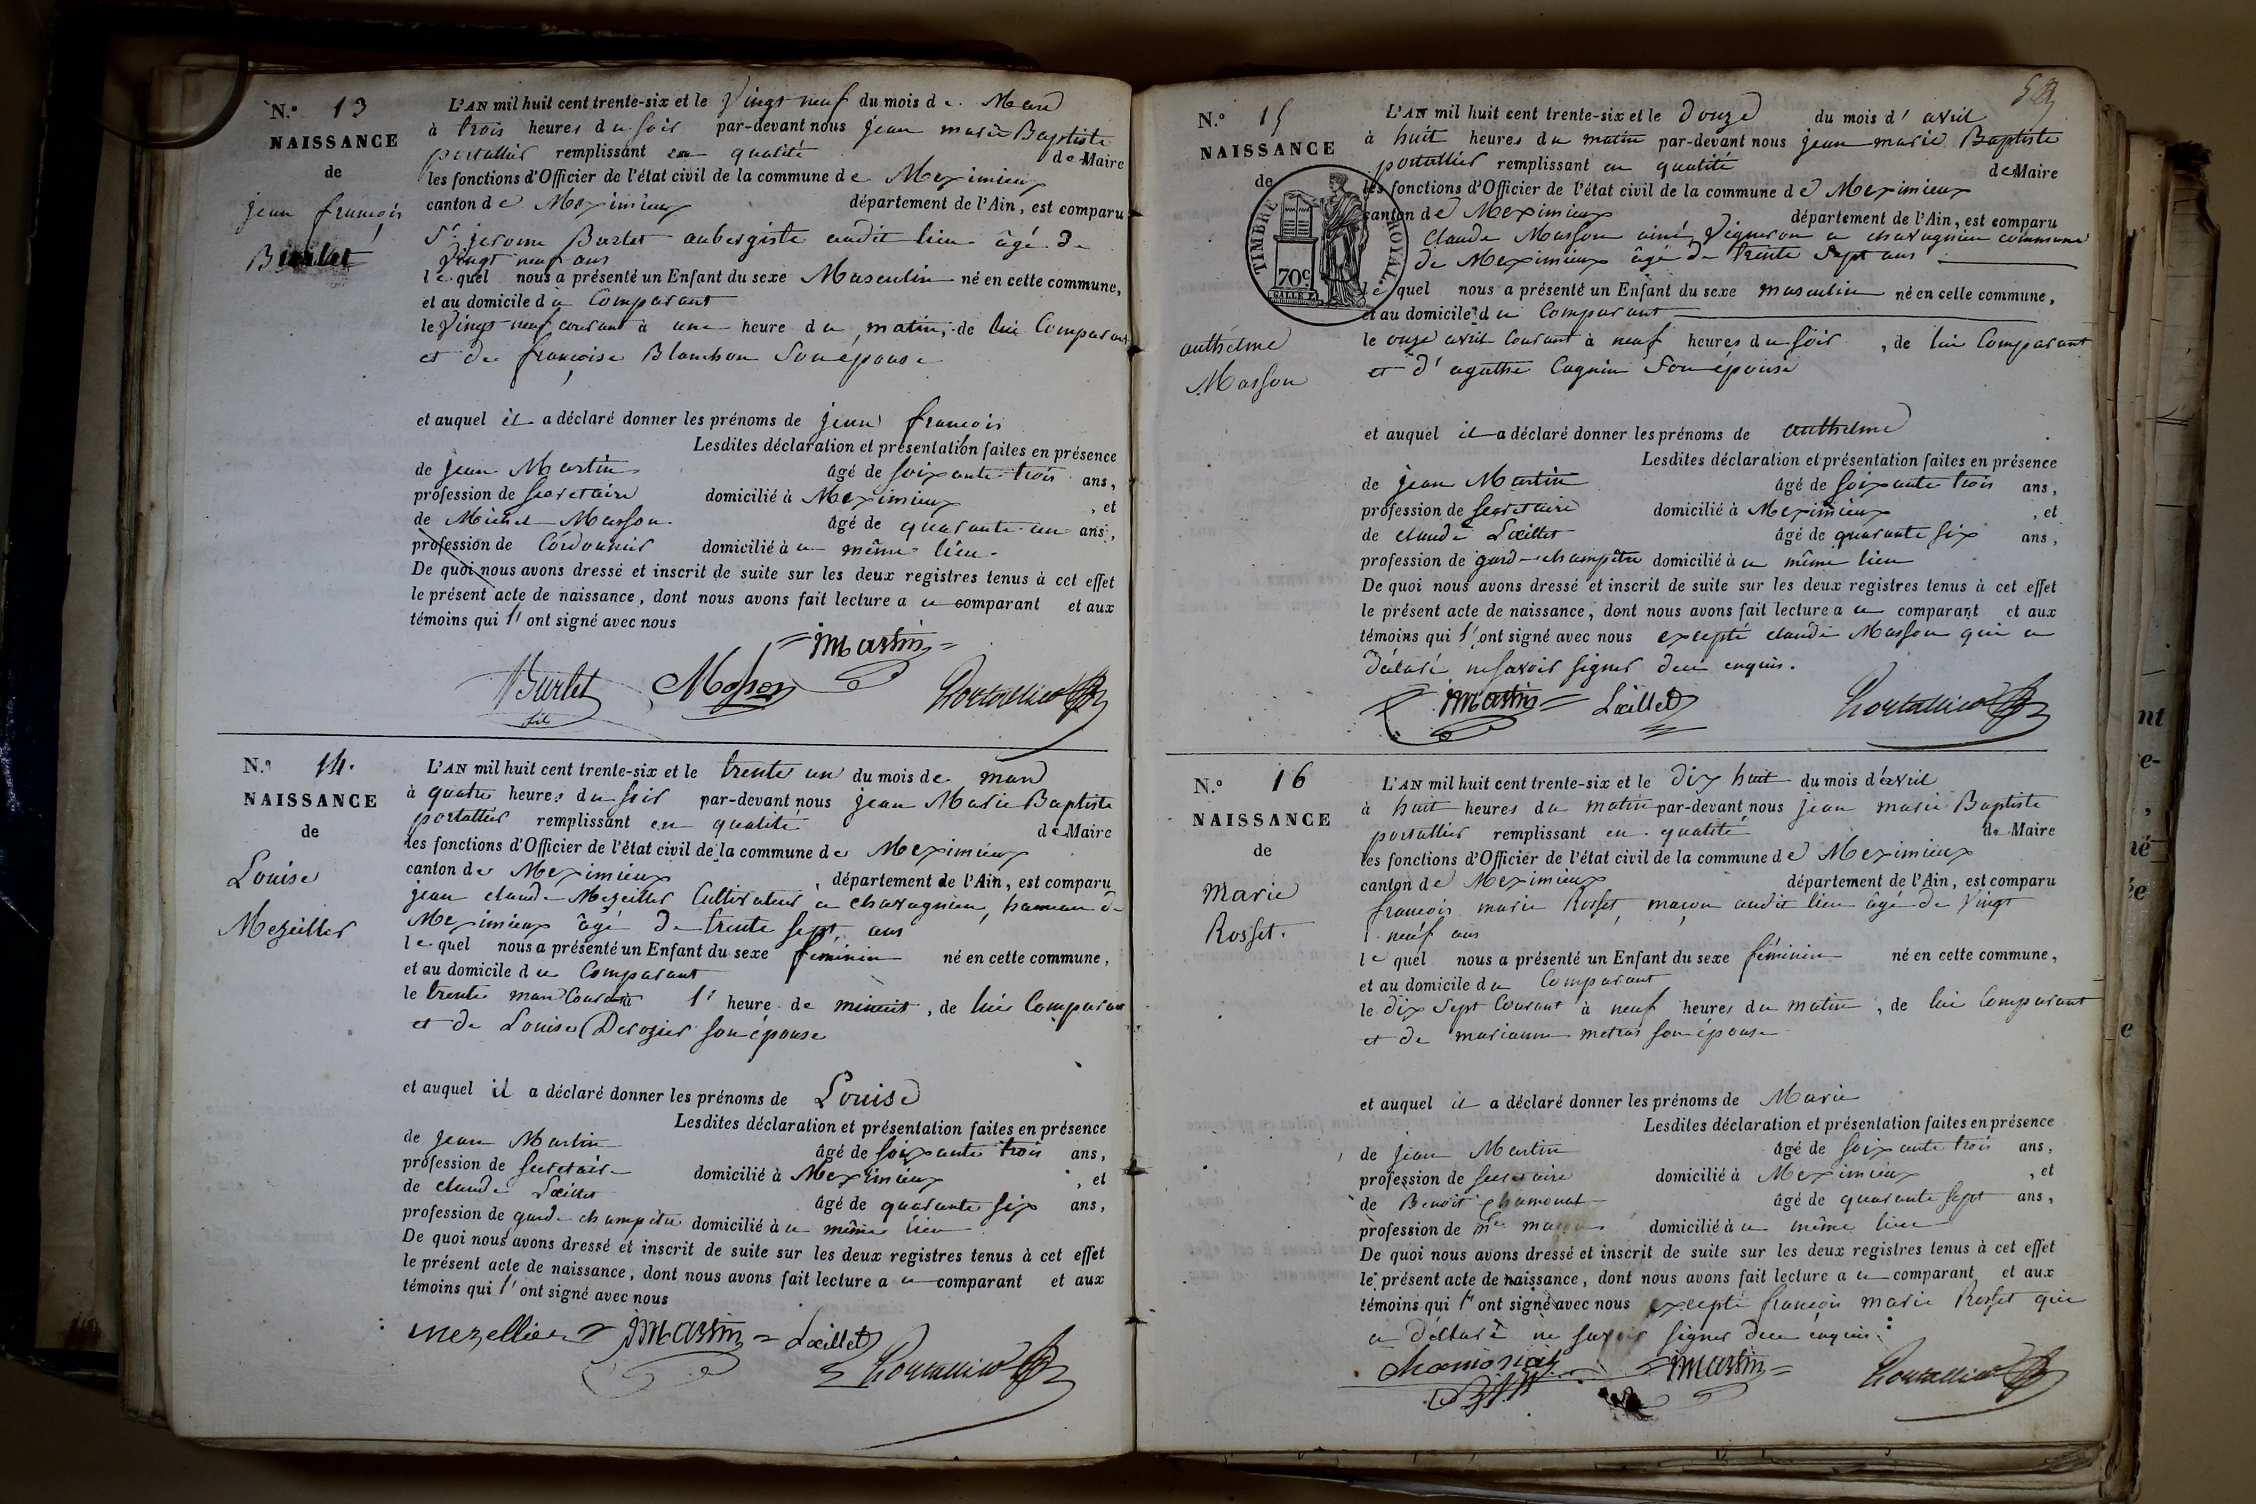 N.º 13
NAISSANCE
de
jean françois
Burlet
L'AN mil huit cent trente-six et le vingt neuf du mois de Mars
à trois heures du soir par-devant nous jean marie Baptiste
portallier remplissant en qualité de Maire
les fonctions d'Officier de l'état civil de la commune de Meximieux
canton de Meximieux département de l'Ain, est comparu
Sr jerome Burlet aubergiste audit lieu âgé de
vingt neuf ans
lequel nous a présenté un Enfant du sexe Masculin né en cette commune,
et au domicile du Comparant
le vingt neuf courant à une heure du matin, de lui Comparant
et de françoise Blanchon son épouse
et auquel il a déclaré donner les prénoms de jean françois
Lesdites déclaration et présentation faites en présence
de jean Martin âgé de soixante trois ans,
profession de secretaire domicilié à Meximieux, et
de Michel Masson âgé de quarante un ans,
profession de Cordonnier domicilié à u même lieu
De quoi nous avons dressé et inscrit de suite sur les deux registres tenus à cet effet
le présent acte de naissance, dont nous avons fait lecture a u comparant et aux
témoins qui l' ont signé avec nous
= jmartin =
Burlet Masson Portallier
fils
N.º 14.
NAISSANCE
de
Louise
Mezeiller
L'AN mil huit cent trente-six et le trente un du mois de mars
à quatre heures du soir par-devant nous jean Marie Baptiste
portallier remplissant en qualité de Maire
les fonctions d'Officier de l'état civil de la commune de Meximieux
canton de Meximieux, département de l'Ain, est comparu
jean claude Mezeiller Cultivateur a charagnieu, hameau de
Meximieux âgé de trente sept ans
lequel nous a présenté un Enfant du sexe féminin né en cette commune,
et au domicile du Comparant
le trente mars Courant l' heure de minuit, de lui Comparant
et de Louise Derozier son épouse
et auquel il a déclaré donner les prénoms de Louise
Lesdites déclaration et présentation faites en présence
de jean Martin âgé de soixante trois ans,
profession de secretaire domicilié à Meximieux, et
de claude Lœillet âgé de quarante six ans,
profession de garde champêtre domicilié à u même lieu
De quoi nous avons dressé et inscrit de suite sur les deux registres tenus à cet effet
le présent acte de naissance, dont nous avons fait lecture a u comparant et aux
témoins qui l' ont signé avec nous
mezellier jmartin = Lœillet
Portallier
N.º 15
NAISSANCE
de
TIMBRE ROYAL.
70c
anthelme
Masson
L'AN mil huit cent trente-six et le douze du mois d' avril
à huit heures du matin par-devant nous jean marie Baptiste
portallier remplissant en qualité de Maire
les fonctions d'Officier de l'état civil de la commune de Meximieux
canton de Meximieux département de l'Ain, est comparu
Claude Masson ainé, vigneron a charagnieu commune
de Meximieux âgé de trente sept ans
lequel nous a présenté un Enfant du sexe masculin né en cette commune,
et au domicile du Comparant
le onze avril Courant à neuf heures du soir, de lui Comparant
et d' agathe Cagnin son épouse
et auquel il a déclaré donner les prénoms de anthelme
Lesdites déclaration et présentation faites en présence
de jean Martin âgé de soixante trois ans,
profession de secretaire domicilié à Meximieux, et
de claude Lœillet âgé de quarante six ans,
profession de gard-champêtre domicilié à u même lieu
De quoi nous avons dressé et inscrit de suite sur les deux registres tenus à cet effet
le présent acte de naissance, dont nous avons fait lecture a u comparant et aux
témoins qui l' ont signé avec nous excepté claude Masson qui a
déclaré ne savoir signer de ce enquis.
jmartin = Lœillet Portallier
N.º 16
NAISSANCE
de
Marie
Rosset.
L'AN mil huit cent trente-six et le dix huit du mois d'avril
à huit heures du matin par-devant nous jean marie Baptiste
portallier remplissant en qualité de Maire
les fonctions d'Officier de l'état civil de la commune de Meximieux
canton de Meximieux département de l'Ain, est comparu
françois marie Rosset, maçon audit lieu âgé de vingt
neuf ans
lequel nous a présenté un Enfant du sexe féminin né en cette commune,
et au domicile du Comparant
le dix sept Courant à neuf heures du matin, de lui Comparant
et de marianne metras son épouse
et auquel il a déclaré donner les prénoms de Marie
Lesdites déclaration et présentation faites en présence
de jean Martin âgé de soixante trois ans,
profession de secretaire domicilié à Meximieux, et
de Benoit Chamonat âgé de quarante sept ans,
profession de me maçon domicilié à u même lieu
De quoi nous avons dressé et inscrit de suite sur les deux registres tenus à cet effet
le présent acte de naissance, dont nous avons fait lecture a u comparant et aux
témoins qui l' ont signé avec nous excepté françois marie Rosset qui
a déclaré ne savoir signer de ce enquis.
= jmartin = Portallier